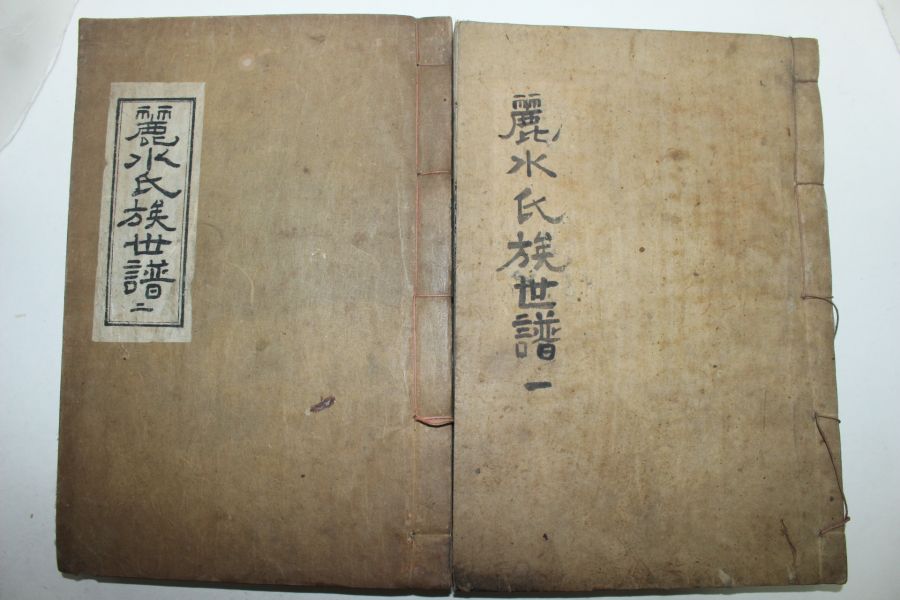 麗水氏族世譜 一
麗水氏族世譜 二